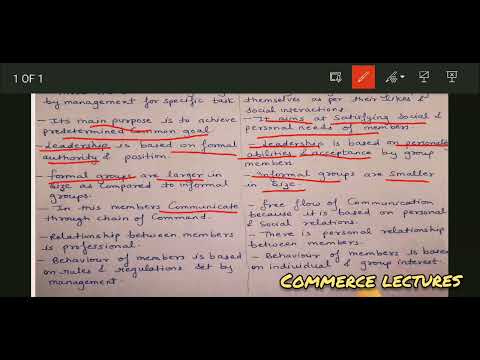 1 OF 1
by management for specific task
- Its main purpose is to achieve
predetermined common goal
- Leadership is based on formal
authority & position.
- Formal groups are larger in
size as compared to informal
groups.
- In this members Communicate
through chain of Command.
- Relationship between members
is professional.
- Behaviour of members is based
on rules & regulations set by
management.
themselves as per their likes &
social interactions
- It aims at satisfying social &
personal needs of members
- Leadership is based on personal
abilities & acceptance by group
members
- Informal groups are smaller
in size.
- Free flow of Communication
because it is based on personal
& Social relations.
- There is personal relationship
between members.
- Behaviour of members is based
on individual & group interest.
COMMERCE LECTURES